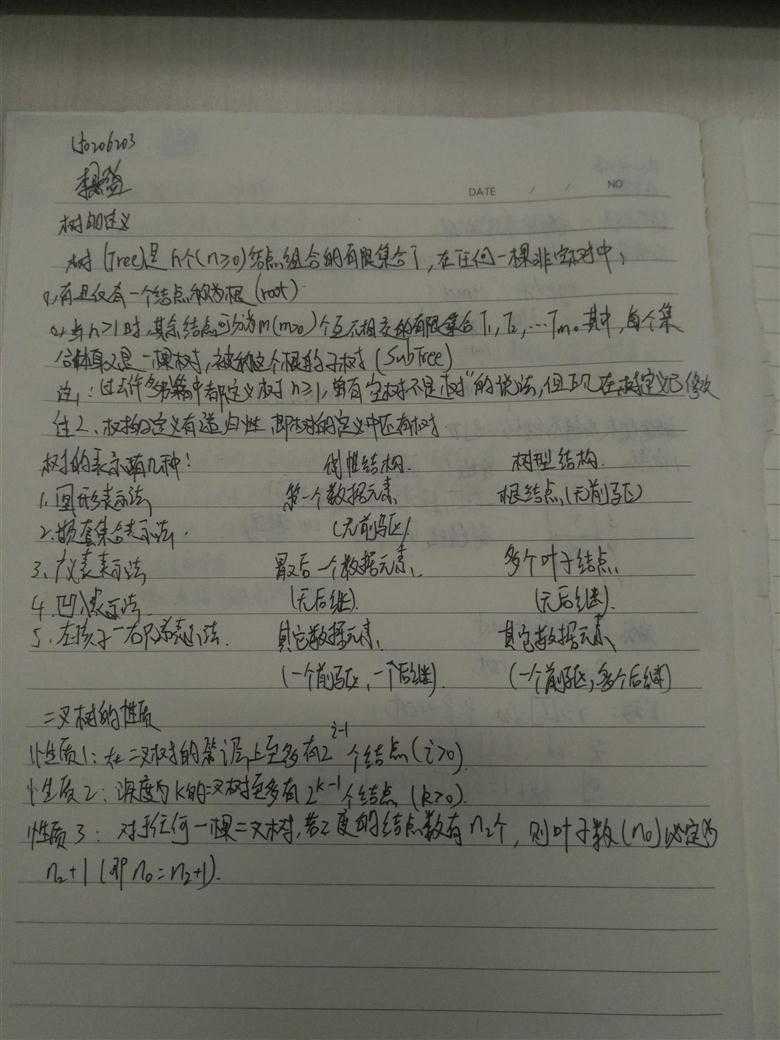 150206203
李
DATE / / NO
树的定义
树(Tree)是n个(n≥0)结点组合的有限集合T,在任何一棵非空树中,
1.有且仅有一个结点称为根(root)
2.当n>1时,其余结点可分为m(m≥0)个互不相交的有限集合T₁,T₂,…Tm。其中,每个集
合本身又是一棵树,被称这个根的子树(SubTree)
注1:过去许多书籍中都定义树n≥1,曾有"空树不是树"的说法,但现在树定义已修改
注2、树的定义有递归性 即树的定义中还有树
树的表示有几种: 线性结构. 树型结构.
1.图形表示法 第一个数据元素 根结点(无前驱)
2.嵌套集合表示法. (无前驱)
3.广义表表示法 最后一个数据元素、 多个叶子结点、
4.凹入表示法. (无后继). (无后继).
5.左孩子一右兄弟表示法. 其它数据元素、 其它数据元素、
(一个前驱,一个后继). (一个前驱,多个后继)
二叉树的性质
性质1:在二叉树的第i层上至多有2^{i-1}个结点(i>0).
性质2:深度为k的二叉树至多有2^{k-1}个结点(k>0).
性质3:对于任何一棵二叉树,若2度的结点数有n₂个,则叶子数(n₀)必定为
n₂+1(即n₀=n₂+1).